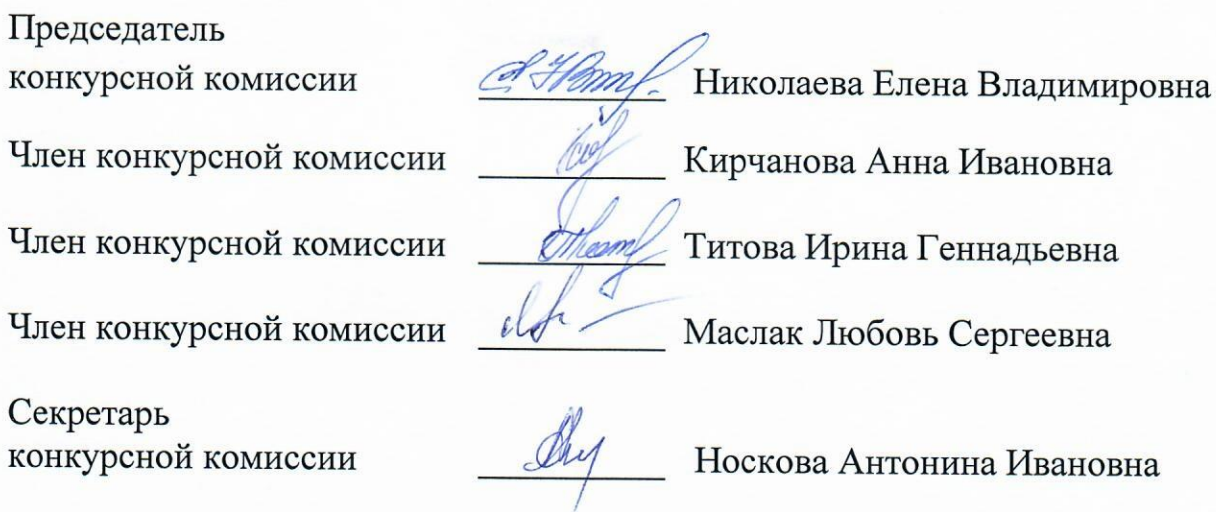 Председатель
конкурсной комиссии Николаева Елена Владимировна
Член конкурсной комиссии Кирчанова Анна Ивановна
Член конкурсной комиссии Титова Ирина Геннадьевна
Член конкурсной комиссии Маслак Любовь Сергеевна
Секретарь
конкурсной комиссии Носкова Антонина Ивановна